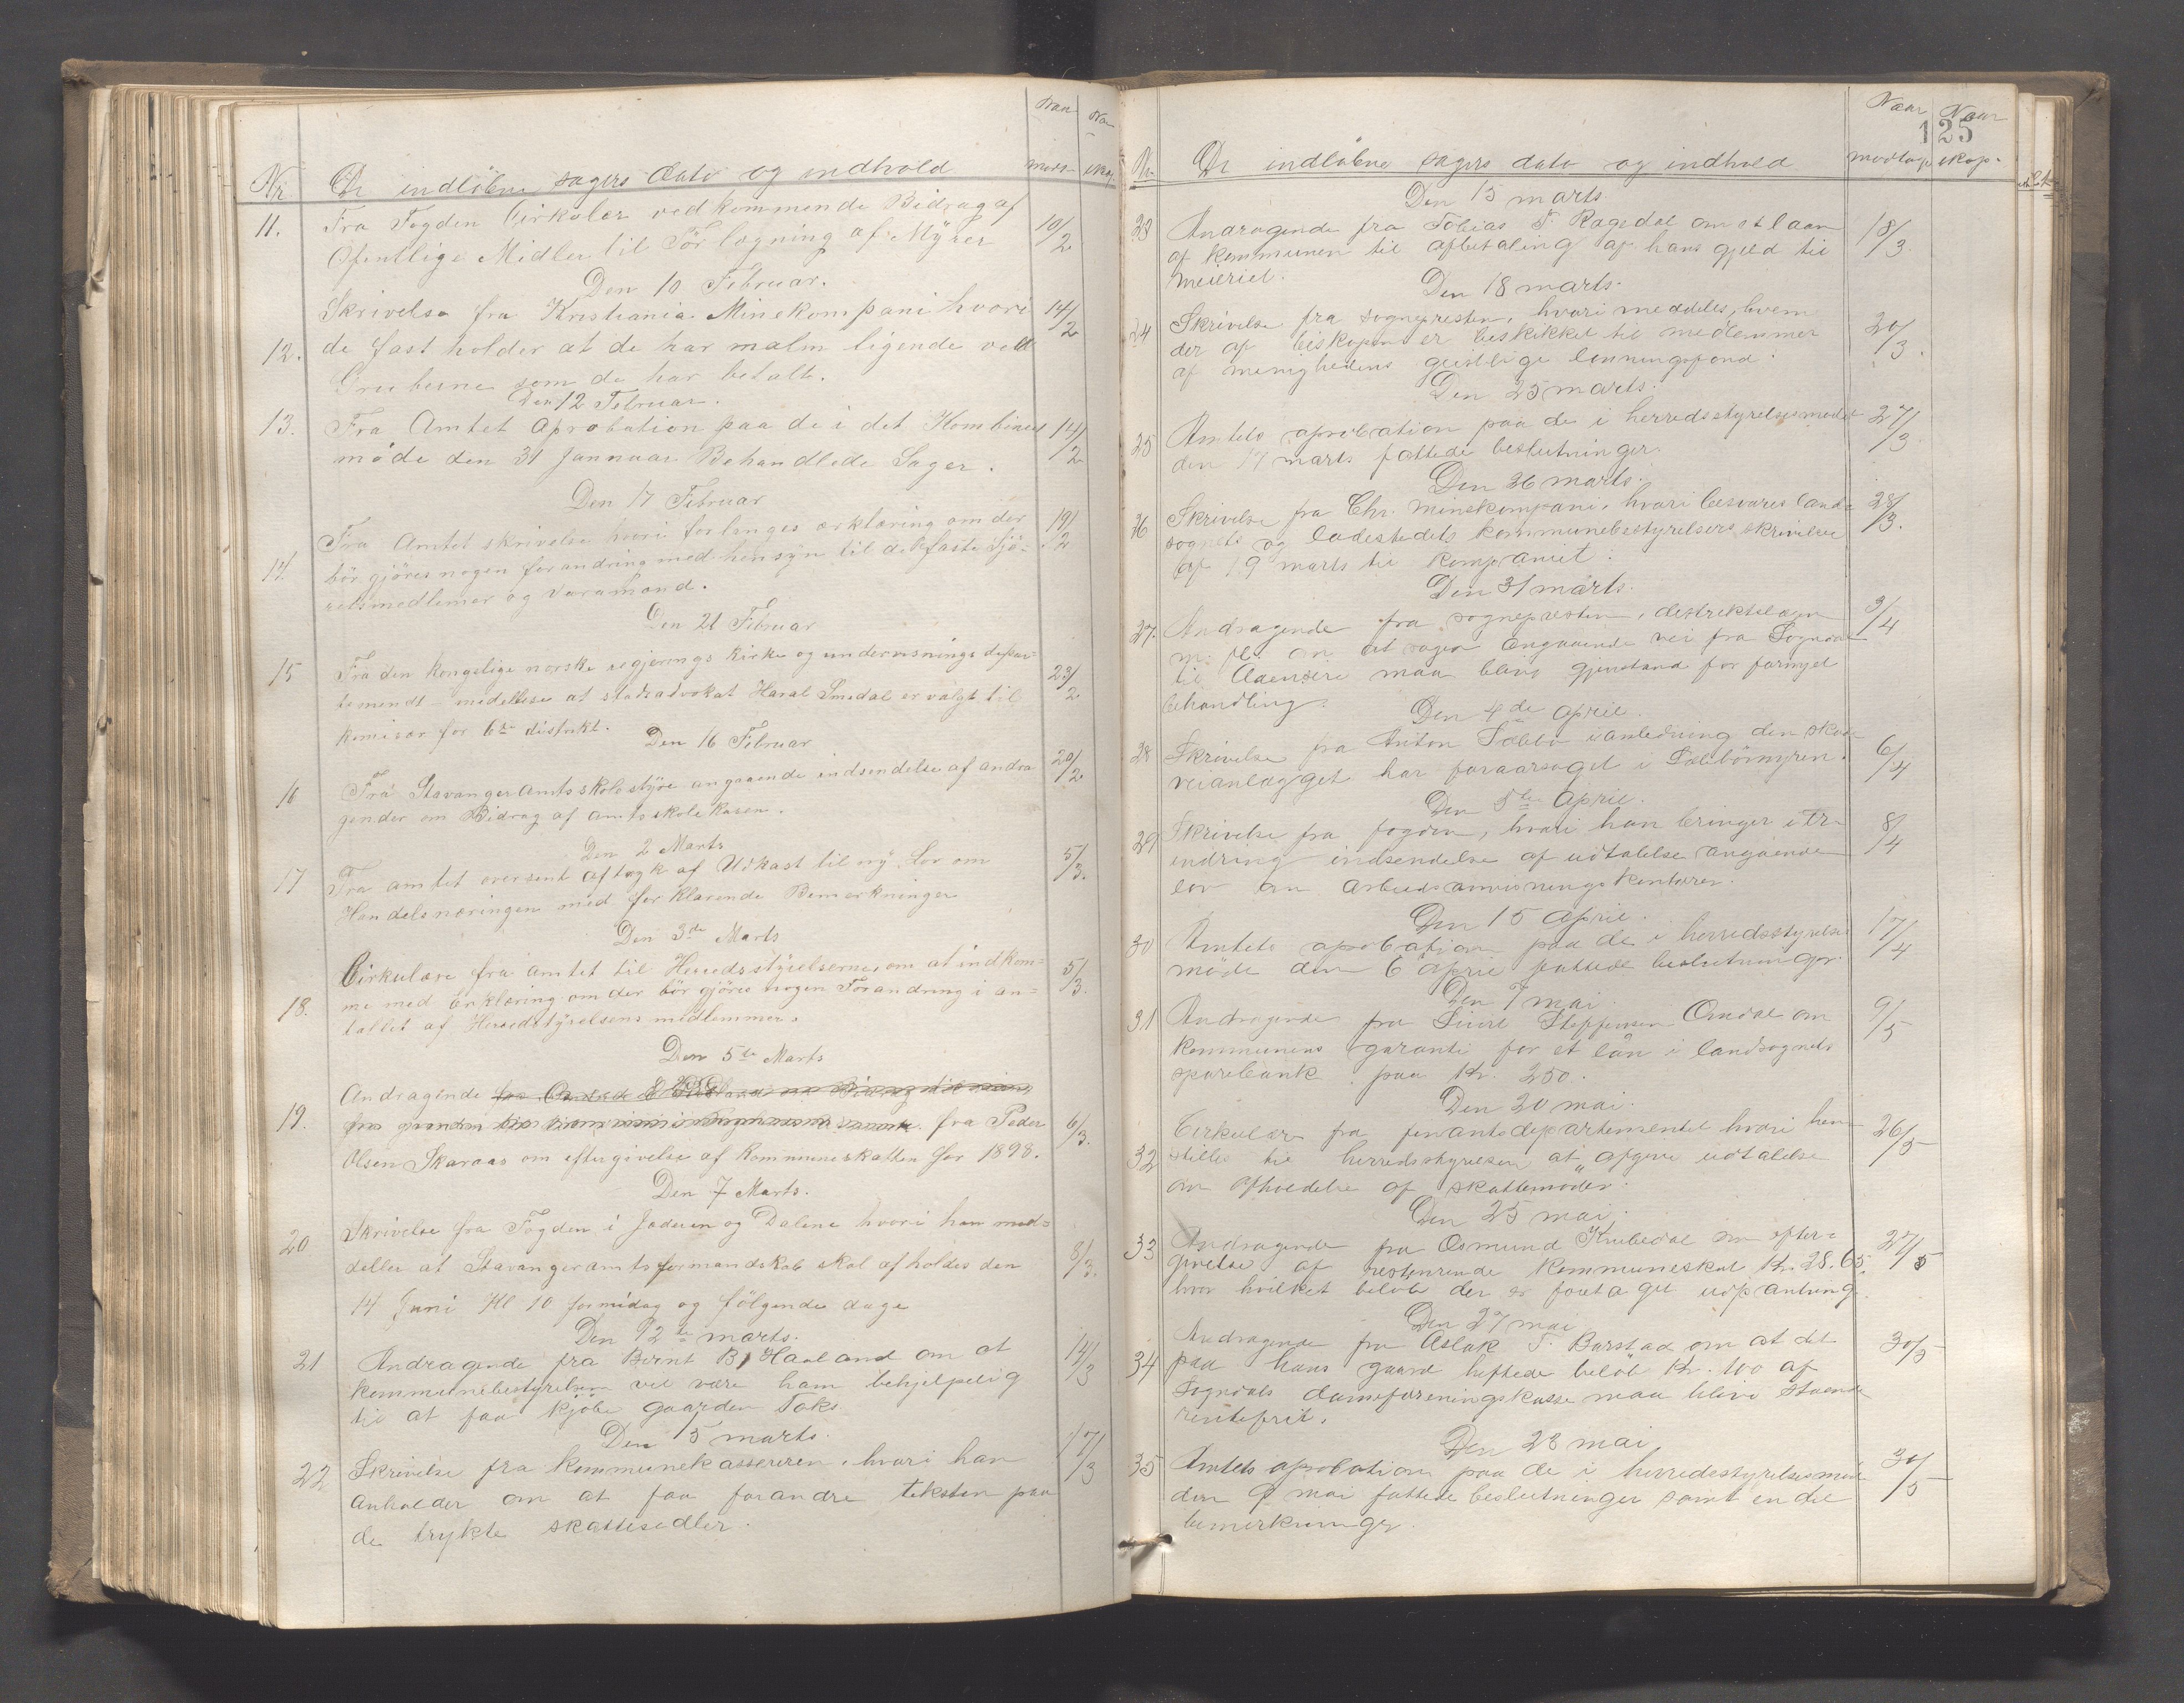 Naar Naar
Nr. De indløbne sagers dato og indhold modt. exsp.
11. Fra Fogden Cirkulær vedkommende Bidrag af 10/2
Ofentlige Midler til Tör lægning af Myrer
Den 10 Februar.
Skrivelse fra Kristiania Minekompani hvori 14/2
12. de fast holder at de har malm ligende ved
Gruberne som de har betalt.
Den 12 Februar.
13. Fra Amtet Aprobation paa de i det Kombinert 14/2
möde den 31 Jannuar Behandlede Sager.
Den 17 Februar
Fra Amtet skrivelse hvori forlanges ærklæring om der 19/2
14. bör gjöres nogen forandring med hensyn til de faste Sjö-
retsmedlemer og Varamænd.
Den 21 Februar
15 Fra den kongelige norske regjerings kirke og undervisnings depar- 23/2
temendt – medellelse at stadsadvokat Haral Smedal er valgt til
komisær for 6te distrikt.
Den 16 Februar
16 Fra Stavanger amts skolestyre angaaende indsendelse af andra 20/2
gender om Bidrag af amts skole kasen.
Den 2 Marts
17 Fra amtet oversent aftryk af Udkast til ny Lov om 5/3.
Handelsnæringen med forklarende Bemerkninger
Den 3de Marts
Cirkulære fra amtet til Herredsstyrelserne, om at indkom= 5/3.
18. me med Erklæring om der bör gjöres nogen Forandring i an=
tallet af Herredstyrelsens medlemmer.
Den 5te Marts
Andragende
19. fra Peder 6/3.
Olsen Skaraas om eftergivelse af Kommuneskatten for 1898.
Den 7 Marts.
20 Skrivelse fra Fogden i Jæderen og Dalene hvori han med= 8/3.
deller at Stavanger amtsformandskab skal afholdes den
14 Juni Kl 10 formidag og fölgende dage
Den 12te marts.
21 Andragende fra Bernt B. Haaland om at 14/3
kommunebestyrelsen vil være ham behjelpelig
til at faa kjöbe gaarden Toks.
Den 15 marts.
22 Skrivelse fra kommunekassereren, hvori han 17/3
anholder om at faa forandre teksten paa
de trykte skattesedler.
125
Naar Naar
Nr. De indløbne sagers dato og indhold modtag. eksp.
Den 15 marts
23 Andragende fra Tobias T. Ragedal om et laan 18/3
af kommunen til afbetaling af hans gjeld til
meieriet.
Den 18 marts.
24 Skrivelse fra sognepresten, hvori meddeles, hvem 20/3.
der af biskopen er beskikket til medlemmer
af menighedens geistlige lønningsfond.
Den 25 marts.
25 Amtets aprobation paa de i herredsstyrelsesmødet 27/3
den 17 marts fattede beslutninger.
Den 26 marts.
26 Skrivelse fra Chr. minekompani, hvori besvares land- 28/3.
sognets og ladestedets kommunebestyrelsers skrivelse
af 19 marts til kompaniet.
Den 31 marts.
27. Andragende fra sognepresten, destriktslægen 3/4
m. fl. om at sagen angaaende vei fra Sogndal
til Aaensire maa blive gjenstand for fornyet
behandling.
Den 4de april.
28 Skrivelse fra Anton Sæbbø i anledning den skade 6/4
veianlægget har foraarsaget i Sælibörnyren.
Den 5te april.
29 Skrivelse fra fogden, hvori han bringer i Er- 8/4
indring indsendelse af udtalelse angaaende
lov om arbeidsanvisningskontorer.
Den 15 april.
30 Amtets aprobation paa de i herredsstyrelses- 17/4
møde den 6 april fattede beslutninger.
Den 7 mai.
31 Andragende fra Sivert Steffensen Omdal om 9/5
kommunens garanti for et lån i landsognets
sparebank paa Kr. 250.
Den 20 mai.
Cirkulær fra finantsdepartementet hvori hen- 26/5
32 stilles til herredsstyrelsen at afgive udtalelse
om afholdelse af skattemøder.
Den 25 mai.
33 Andragende fra Osmund Knubedal om efter- 27/5
givelse af resterende kommuneskat Kr. 28.65.
hvor hvilket beløb der er foretaget udpantning.
Den 27 mai
Andragende fra Aslak T. Barstad om at det 30/5
34 paa hans gaard heftede beløb Kr. 100 af
Sogndals dameforeningskasse maa blive staaende
rentefrit.
Den 28 mai
35 Amtets aprobation paa de i herredsstyrelsesmøde 30/5
den 9 mai fattede beslutninger samt en del
bemerkninger.